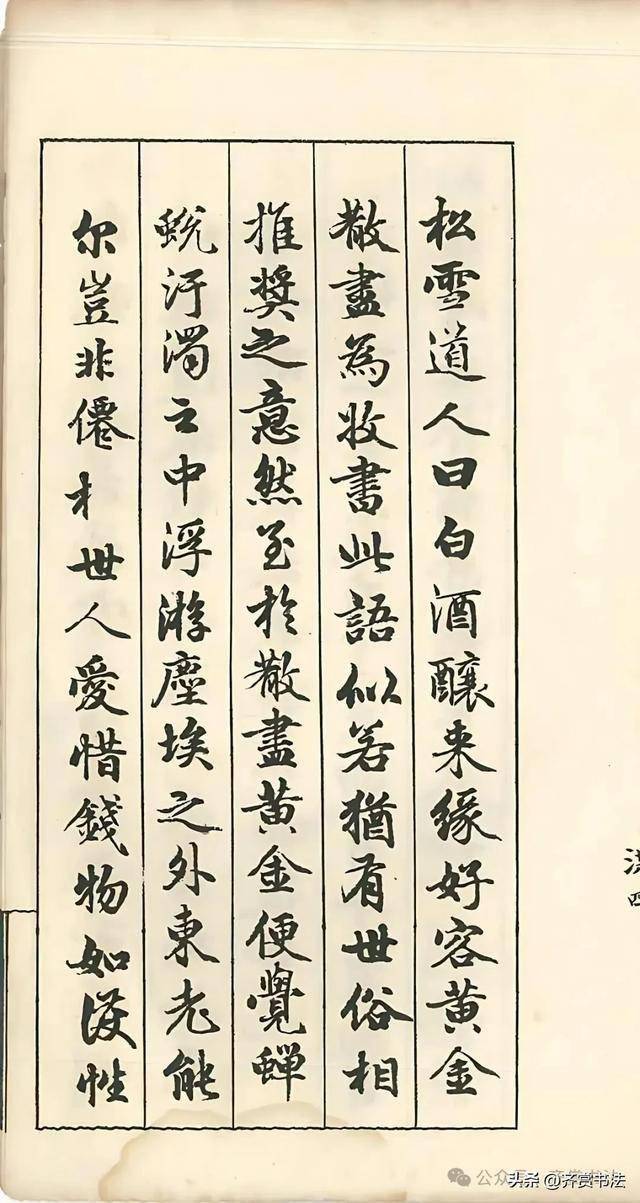 松雪道人曰白酒釀来緣好客黄金
散盡為收書此語似若猶有世俗相
推奬之意然至於散盡黄金便覺蟬
蛻汙濁之中浮游塵埃之外東老能
尔豈非僊才世人愛惜錢物如護性
头条 @齐赏书法